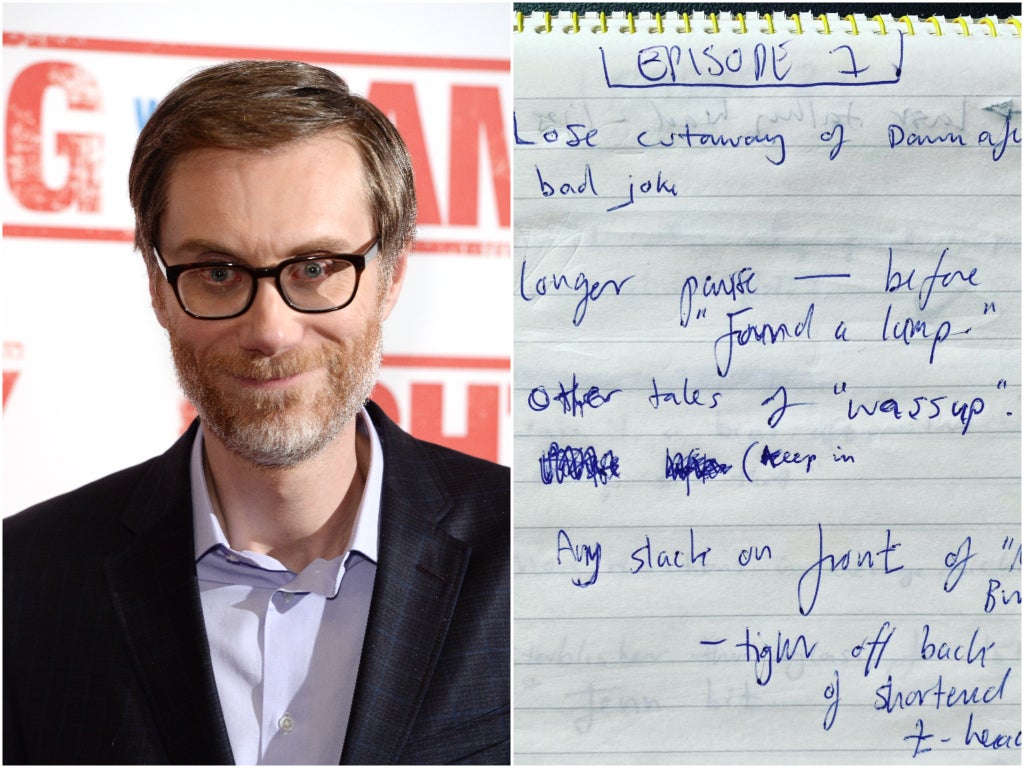 G W AM
Y GHT
EPISODE 1
Lose cutaway of Dawn aft
bad joke
Longer pause — before
"Found a lump."
Other tales of "wassup".
(keep in
Any slack on front of
Bin
- tighter off back
of shortened
t-head